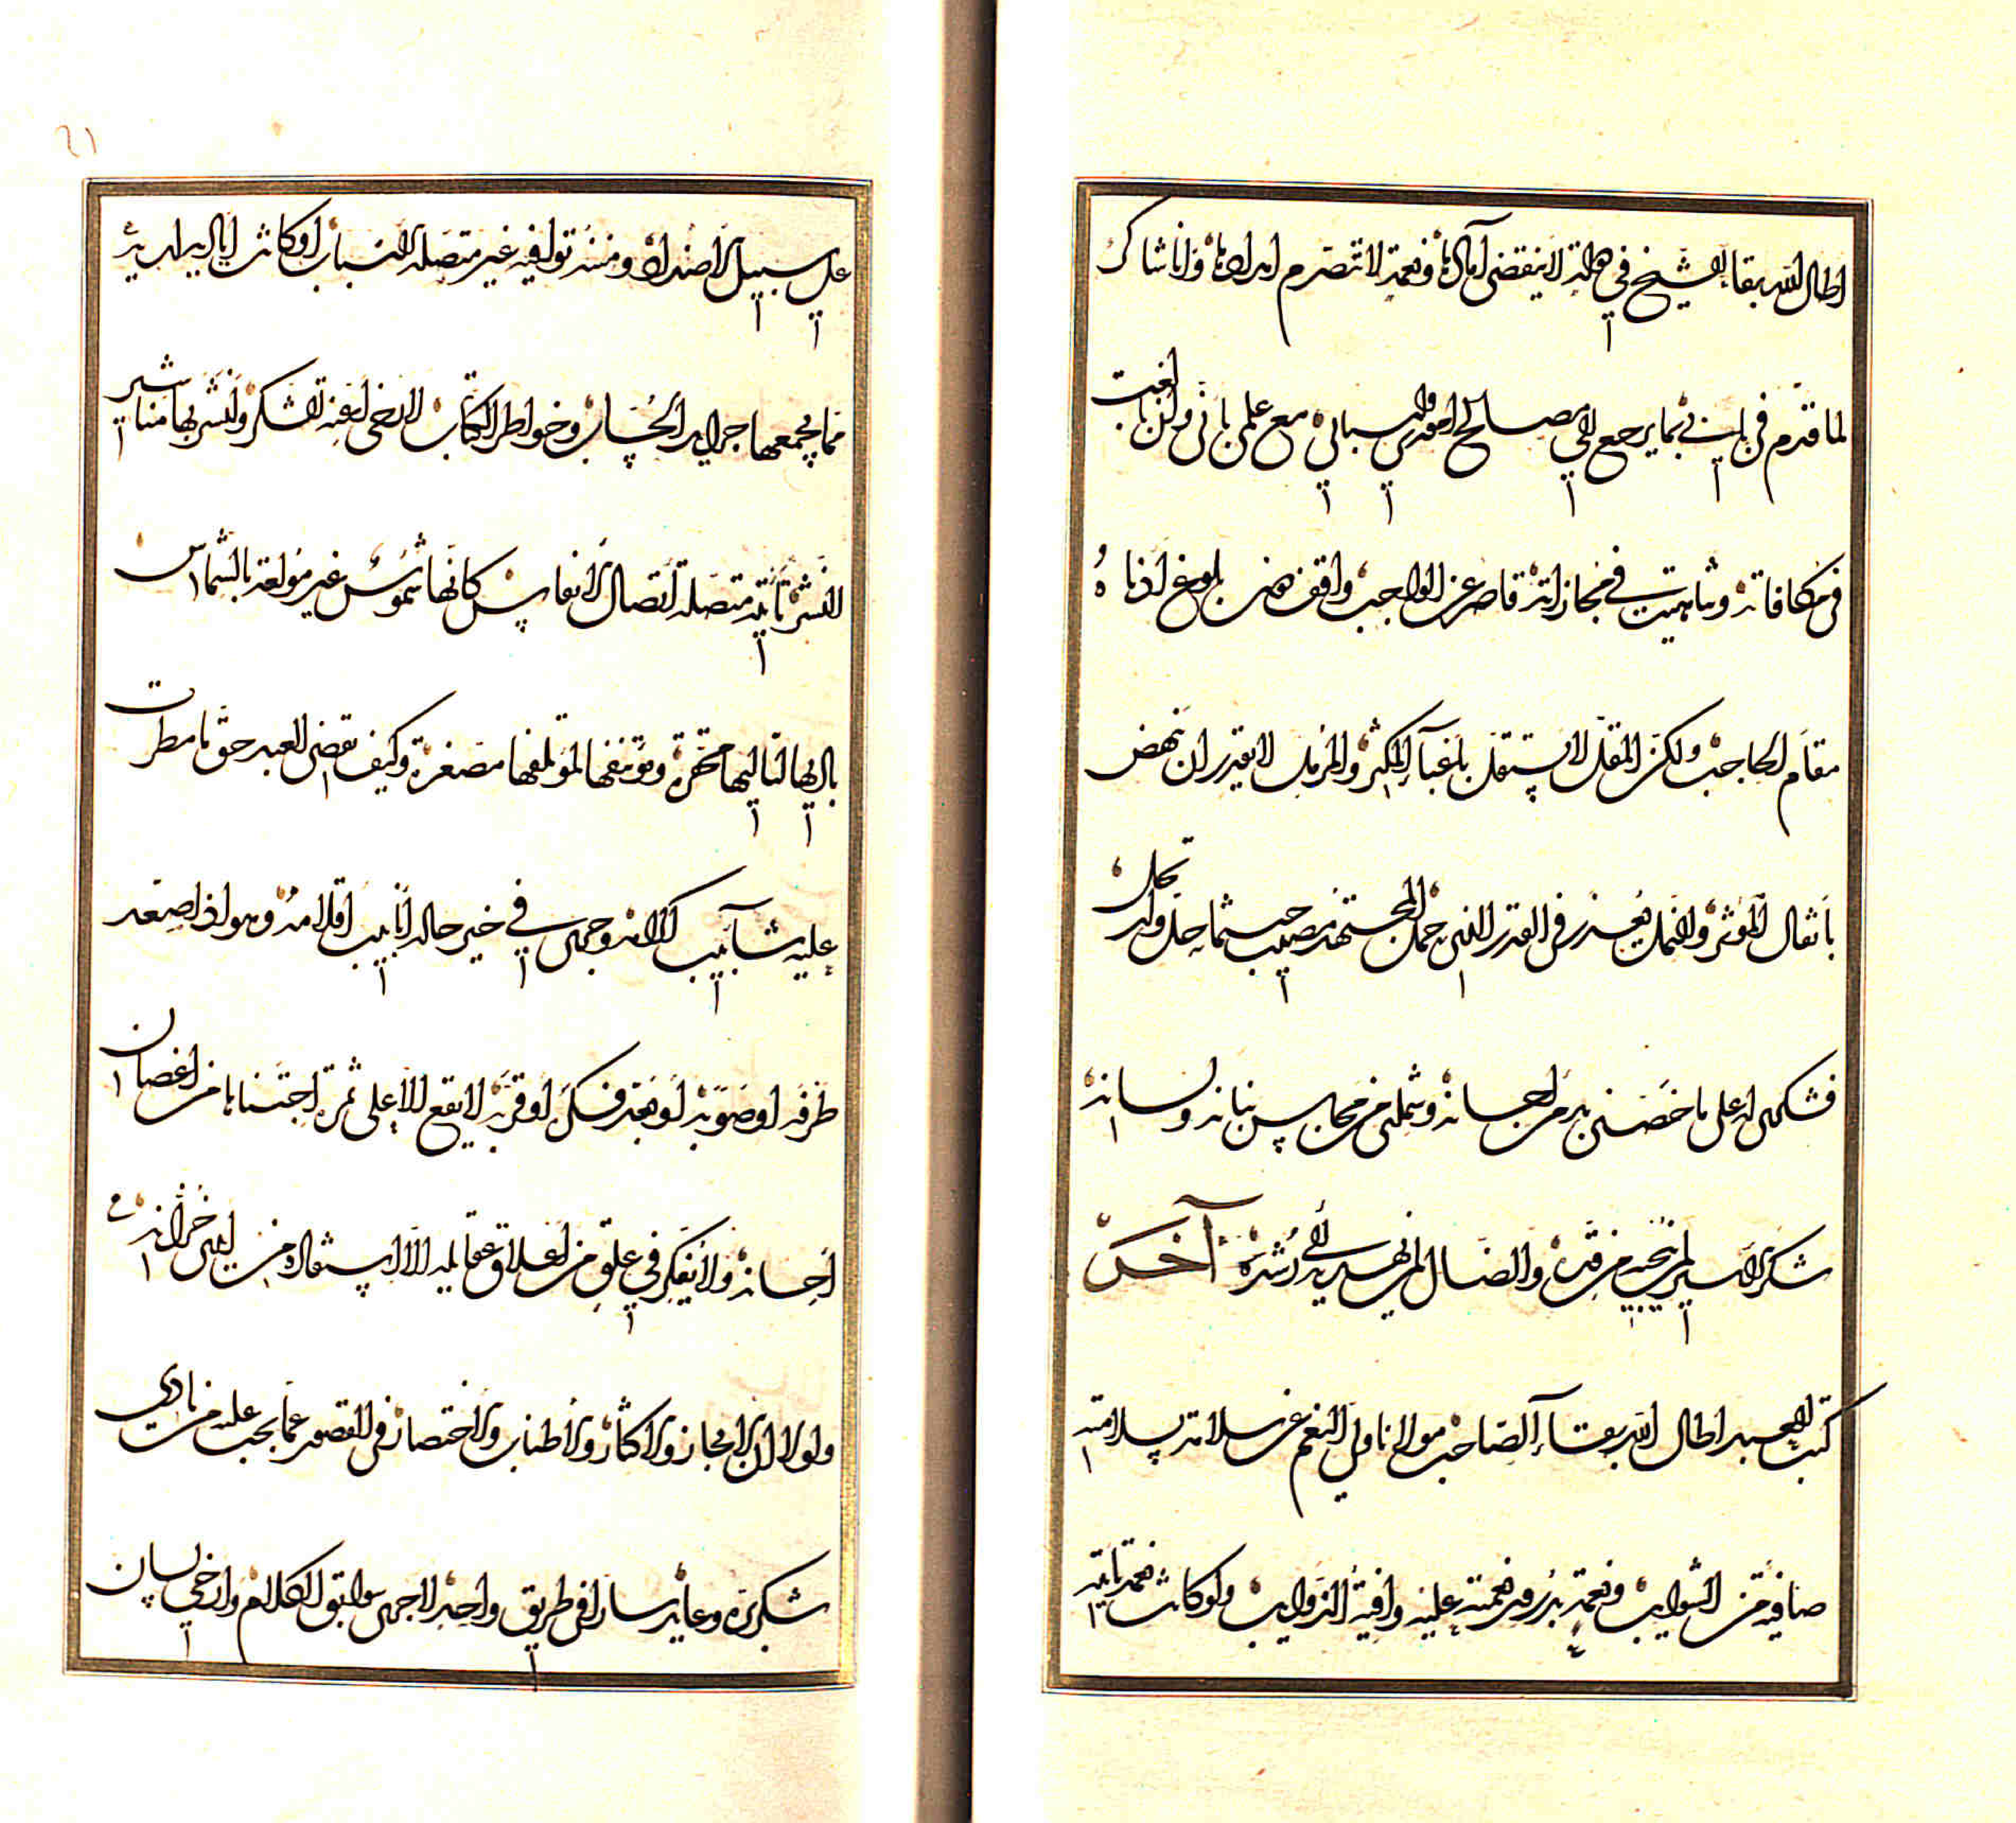 اطال الله بقا الشيخ في دولة لا ينقضي آمالها ونعمة لا تتصرم امدادها وانا شاكر
لما قدم في بابي بما يرجع الي مصالح اموري واسبابي مع علمي باني وان بالغت
في مكافاته وتناهيت في مجازاته قاصر عن الواجب واقف دون بلوغ ادناه
مقام الحاجب ولكن المقل لا يستقل باعباء المكثر والمزمل لا يقدر ان ينهض
باثقال الموثر والنمل يعذر في القدر الذي حمل المجتهد مصيب حيثما حل وارتحل
فشكري له على ما خصني به من احسانه وشملني من محاسن بنانه ولسانه
شكر الاسير لمن ينجيه من قده والضال لمن يهديه الى رشده آخر
كتب العبد اطال الله بقاء الصاحب مولانا ولي النعم عن سلامة بسلامته
صافية من الشوايب ونعمة بدوام نعمته عليه وافية الذوايب ولو كانت نعمه تاتيه
٦١
على سبيل الاضداد ومننه توافيه غير متصلة الاسباب او كانت اياديه لديه
مما يجمعها جرايد الحساب وخواطر الكتاب لارخى اعنة الشكر ونشر بها مناشير
النشر تاتيه متصلة اتصال الانفاس كانها شموس غير مولعة بالشماس
باديها لتاليها محتقرة ومؤتنفها لمؤتلفها مصغرة وكيف يقضي العبد حق ما مطرت
عليه شآبيب اكرامه وجرى في خير حاله انابيب اقلامه وهو اذا صعد
طرفه او صوبه او بعد فكره او قربه لا يقع الا على ثمرة اجتناها من اغصان
احسانه ولا يفكر في علق من اعلاق عقايله الا استفاده من ايدي خزانه
ولولا ان الايجاز والاكثار والاطناب والاختصار في القصور عما يجب عليه من نادي
شكره وعايد سارا في طريق واحد لاجرى سوابق الكلام وارخى لسان